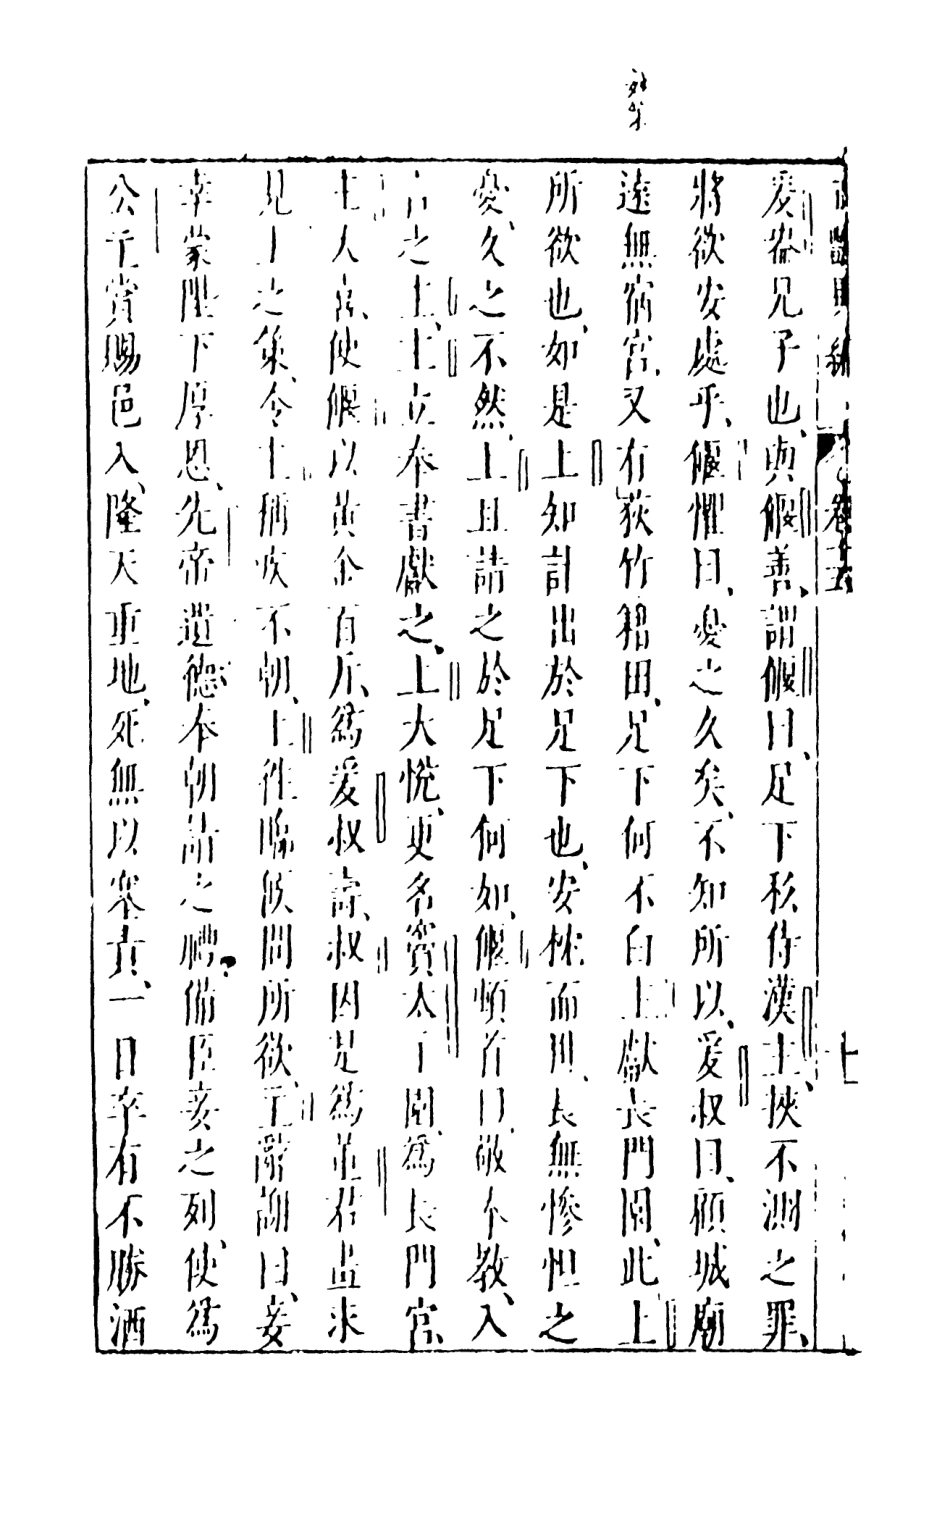 爰盎兄子也、與偃善、謂偃曰、足下私侍漢主、挾不測之罪、
將欲安處乎、偃懼曰、憂之久矣、不知所以、爰叔曰、顧城廟
遠無宿宮、又有萩竹籍田、足下何不白主獻長門園、此上
所欲也、如是上知計出於足下也、安枕而臥、長無慘怛之
憂、久之不然、上且請之、於足下何如、偃頓首曰、敬奉教、入
言之主、主立奉書獻之、上大悅、更名竇太主園、爲長門宮、
主大喜、使偃以黃金百斤、爲爰叔壽、叔因是爲董君畫求
見上之策、令主稱疾不朝、上往臨疾、問所欲、主辭謝曰、妾
幸蒙陛下厚恩、先帝遺德、奉朝請之禮、備臣妾之列、使爲
公主賞賜邑入、隆天重地、死無以塞責、一日卒有不勝洒